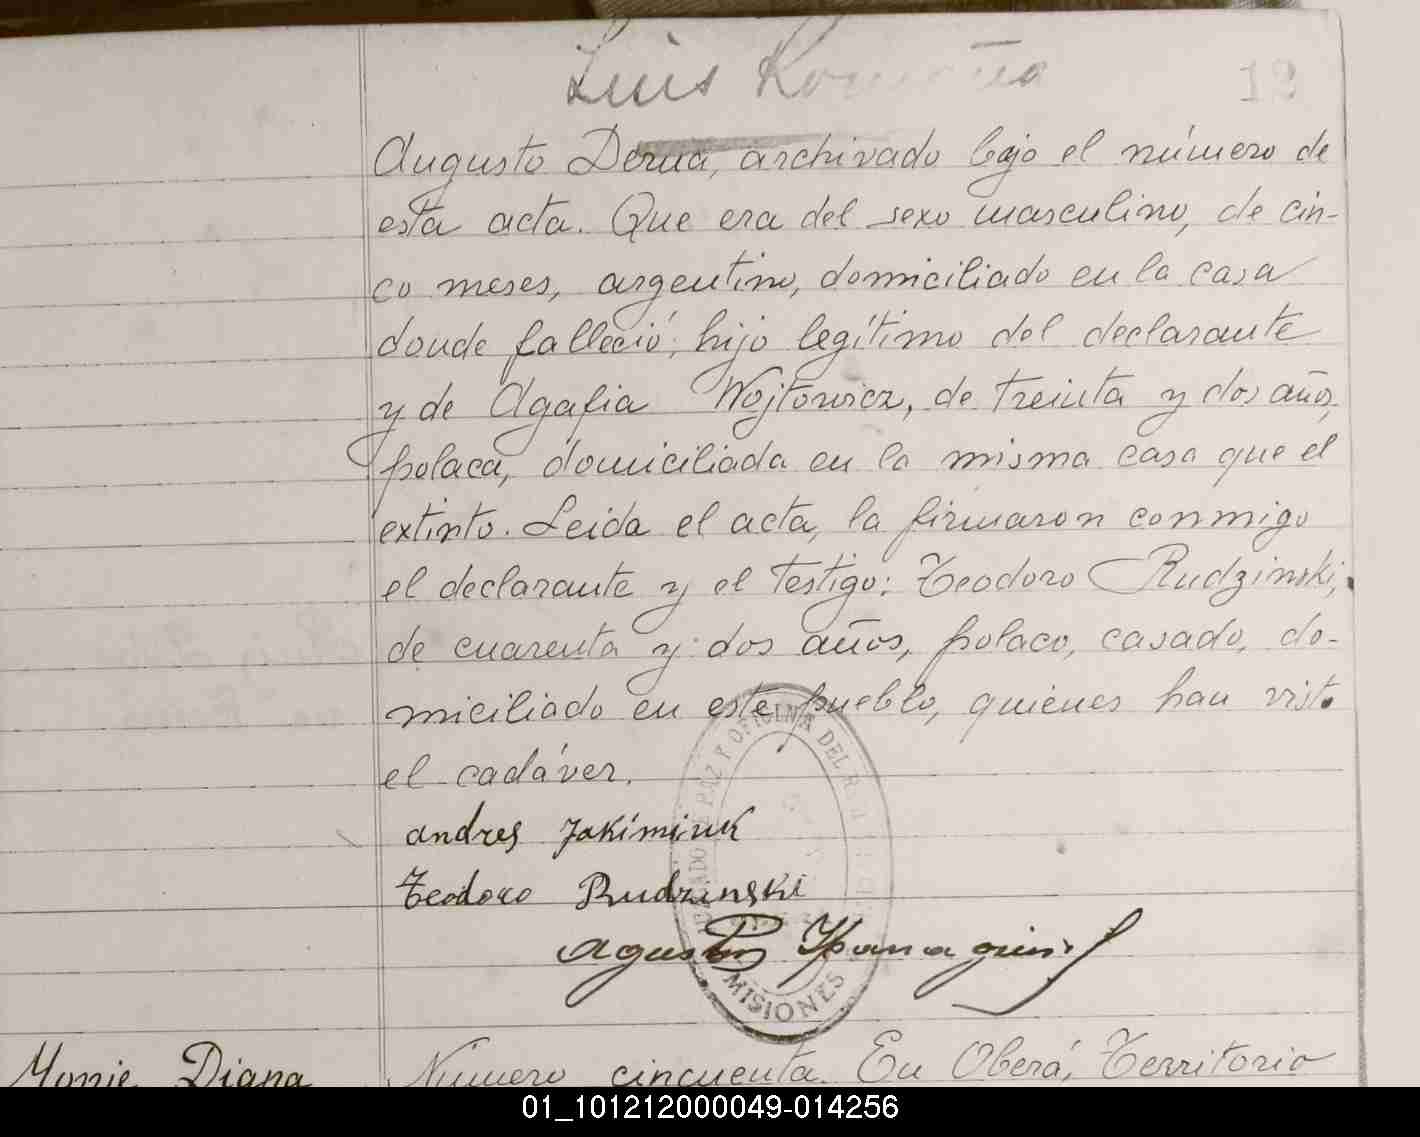 Luis
12
Augusto Derna, archivado bajo el número de
esta acta. Que era del sexo masculino, de cin-
co meses, argentino, domiciliado en la casa
donde falleció; hijo legítimo del declarante
y de Agafia Wojtowicz, de treinta y dos años,
polaca, domiciliada en la misma casa que el
extinto. Leida el acta, la firmaron conmigo
el declarante y el testigo: Teodoro Rudzinski,
de cuarenta y dos años, polaco, casado, do-
miciliado en este pueblo, quienes han visto
el cadáver.
andres Jakimiuk
Teodoro Rudzinski
DE PAZ Y OFICINA DEL
MISIONES
Monie Diana
Número cincuenta. En Oberá, Territorio
01_101212000049-014256